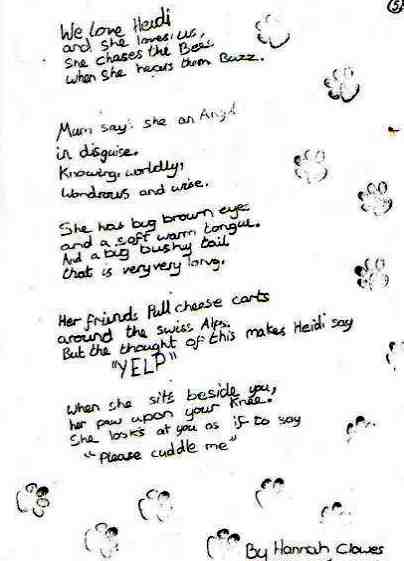 (5)
We love Heidi
and she loves us,
She chases the Bees
when she hears them Buzz.
Mum says she an Angel
in disguise.
Knowing, worldly,
wondrous and wise.
She has big brown eyes
and a soft warm tongue.
And a big bushy tail
that is very very long.
Her friends Pull cheese carts
around the swiss Alps.
But the thought of this makes Heidi say
"YELP"
when she sits beside you,
her paw upon your knee.
She looks at you as if to say
"Please cuddle me"
By Hannah Clowes